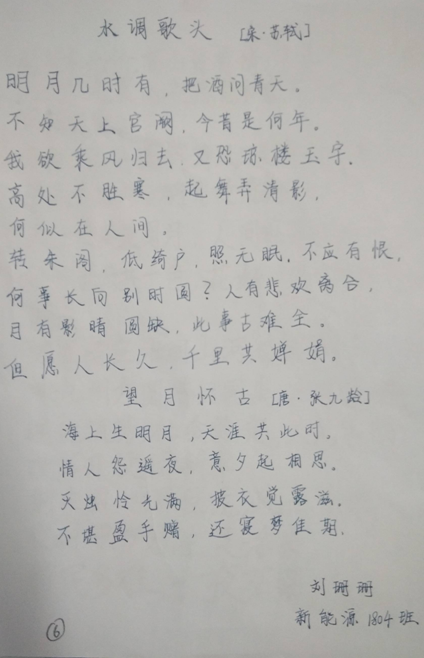 水调歌头 [宋·苏轼]
明月几时有，把酒问青天。
不知天上宫阙，今昔是何年。
我欲乘风归去，又恐琼楼玉宇，
高处不胜寒，起舞弄清影，
何似在人间。
转朱阁，低绮户，照无眠，不应有恨，
何事长向别时圆？人有悲欢离合，
月有影晴圆缺，此事古难全。
但愿人长久，千里共婵娟。
望月怀古 [唐·张九龄]
海上生明月，天涯共此时。
情人怨遥夜，意夕起相思。
灭烛怜光满，披衣觉露滋。
不堪盈手赠，还寝梦佳期。
刘珊珊
新能源1804班
⑥